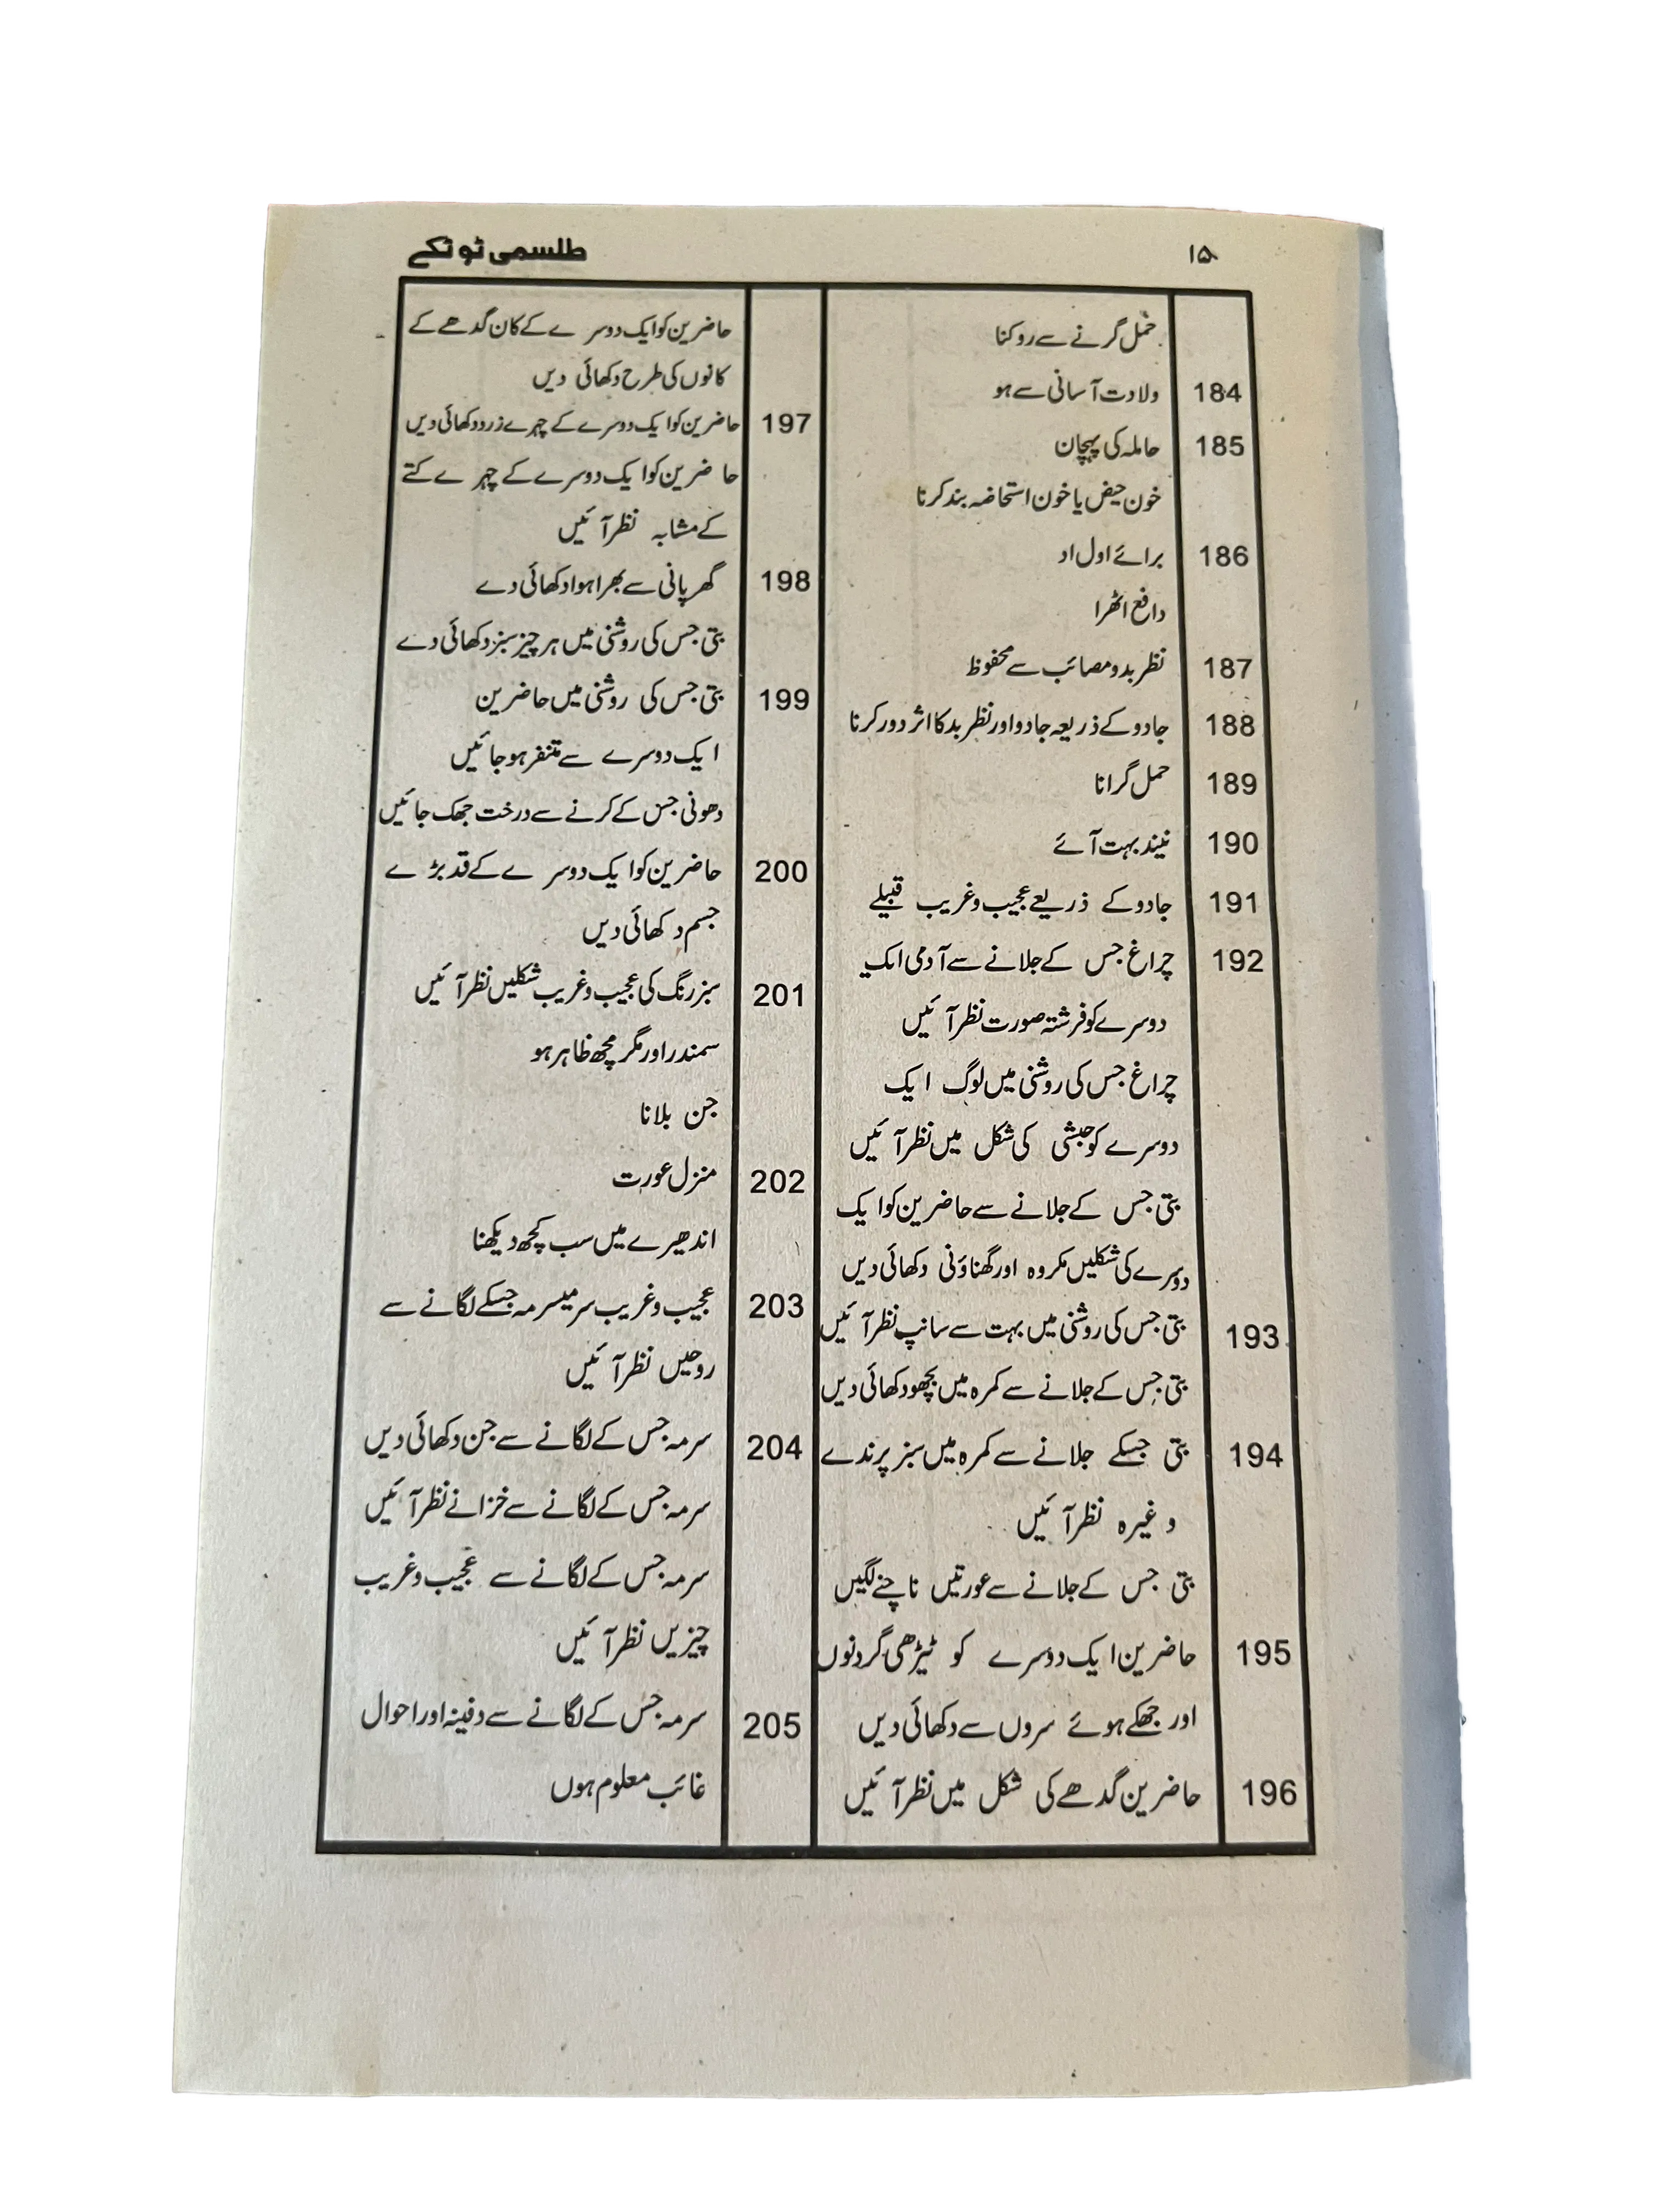 ۱۵
طلسمی ٹوٹکے
حمل گرنے سے روکنا
184 ولادت آسانی سے ہو
185 حاملہ کی پہچان
خون حیض یا خون استحاضہ بند کرنا
186 برائے اول اد
دافع اٹھرا
187 نظر بد و مصائب سے محفوظ
188 جادو کے ذریعہ جادو اور نظر بد کا اثر دور کرنا
189 حمل گرانا
190 نیند بہت آئے
191 جادو کے ذریعے عجیب و غریب قبیلے
192 چراغ جس کے جلانے سے آدمی ایک
دوسرے کو فرشتہ صورت نظر آئیں
چراغ جس کی روشنی میں لوگ ایک
دوسرے کو حبشی کی شکل میں نظر آئیں
بتی جس کے جلانے سے حاضرین کو ایک
دوسرے کی شکلیں مکروہ اور گھناؤنی دکھائی دیں
193 بتی جس کی روشنی میں بہت سے سانپ نظر آئیں
بتی جس کے جلانے سے کمرہ میں بچھو دکھائی دیں
194 بتی جسکے جلانے سے کمرہ میں سبز پرندے
وغیرہ نظر آئیں
بتی جس کے جلانے سے عورتیں ناچنے لگیں
195 حاضرین ایک دوسرے کو ٹیڑھی گردنوں
اور جھکے ہوئے سروں سے دکھائی دیں
196 حاضرین گدھے کی شکل میں نظر آئیں
حاضرین کو ایک دوسرے کے کان گدھے کے
کانوں کی طرح دکھائی دیں
197 حاضرین کو ایک دوسرے کے چہرے زرد دکھائی دیں
حاضرین کو ایک دوسرے کے چہرے کتے
کے مشابہ نظر آئیں
198 گھر پانی سے بھرا ہوا دکھائی دے
بتی جس کی روشنی میں ہر چیز سبز دکھائی دے
199 بتی جس کی روشنی میں حاضرین
ایک دوسرے سے متنفر ہو جائیں
دھونی جس کے کرنے سے درخت جھک جائیں
200 حاضرین کو ایک دوسرے کے قد بڑے
جسم دکھائی دیں
201 سبز رنگ کی عجیب و غریب شکلیں نظر آئیں
سمندر اور مگر مچھ ظاہر ہو
جن بلانا
202 منزل عورت
اندھیرے میں سب کچھ دیکھنا
203 عجیب و غریب سرمیسرمہ جسکے لگانے سے
روحیں نظر آئیں
204 سرمہ جس کے لگانے سے جن دکھائی دیں
سرمہ جس کے لگانے سے خزانے نظر آئیں
سرمہ جس کے لگانے سے عجیب و غریب
چیزیں نظر آئیں
205 سرمہ جس کے لگانے سے دفینہ اور احوال
غائب معلوم ہوں